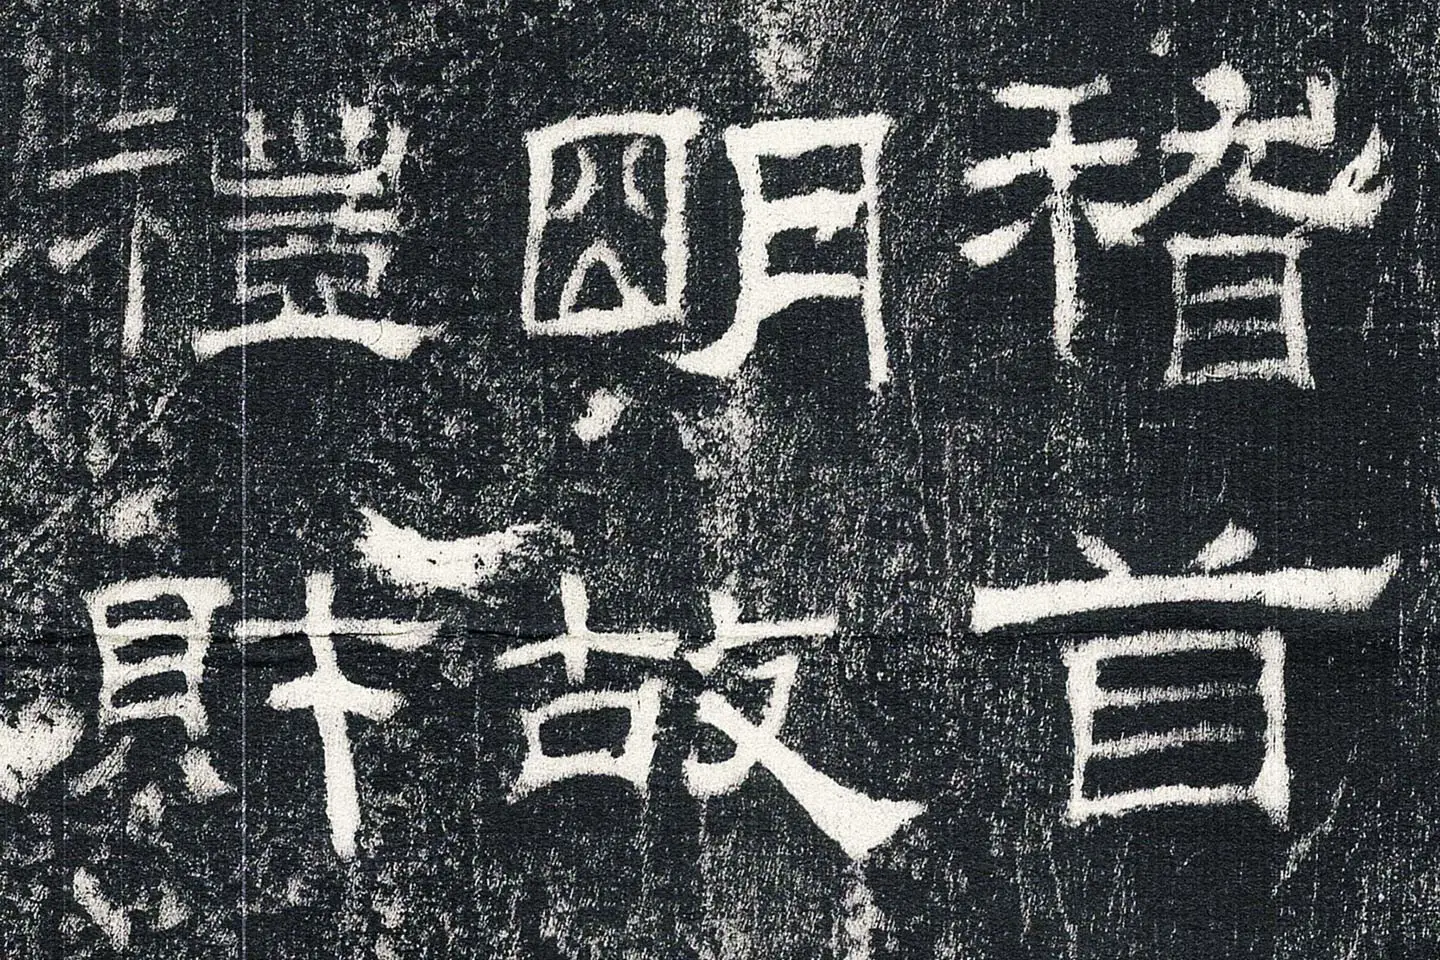 稽首
明故
禮財